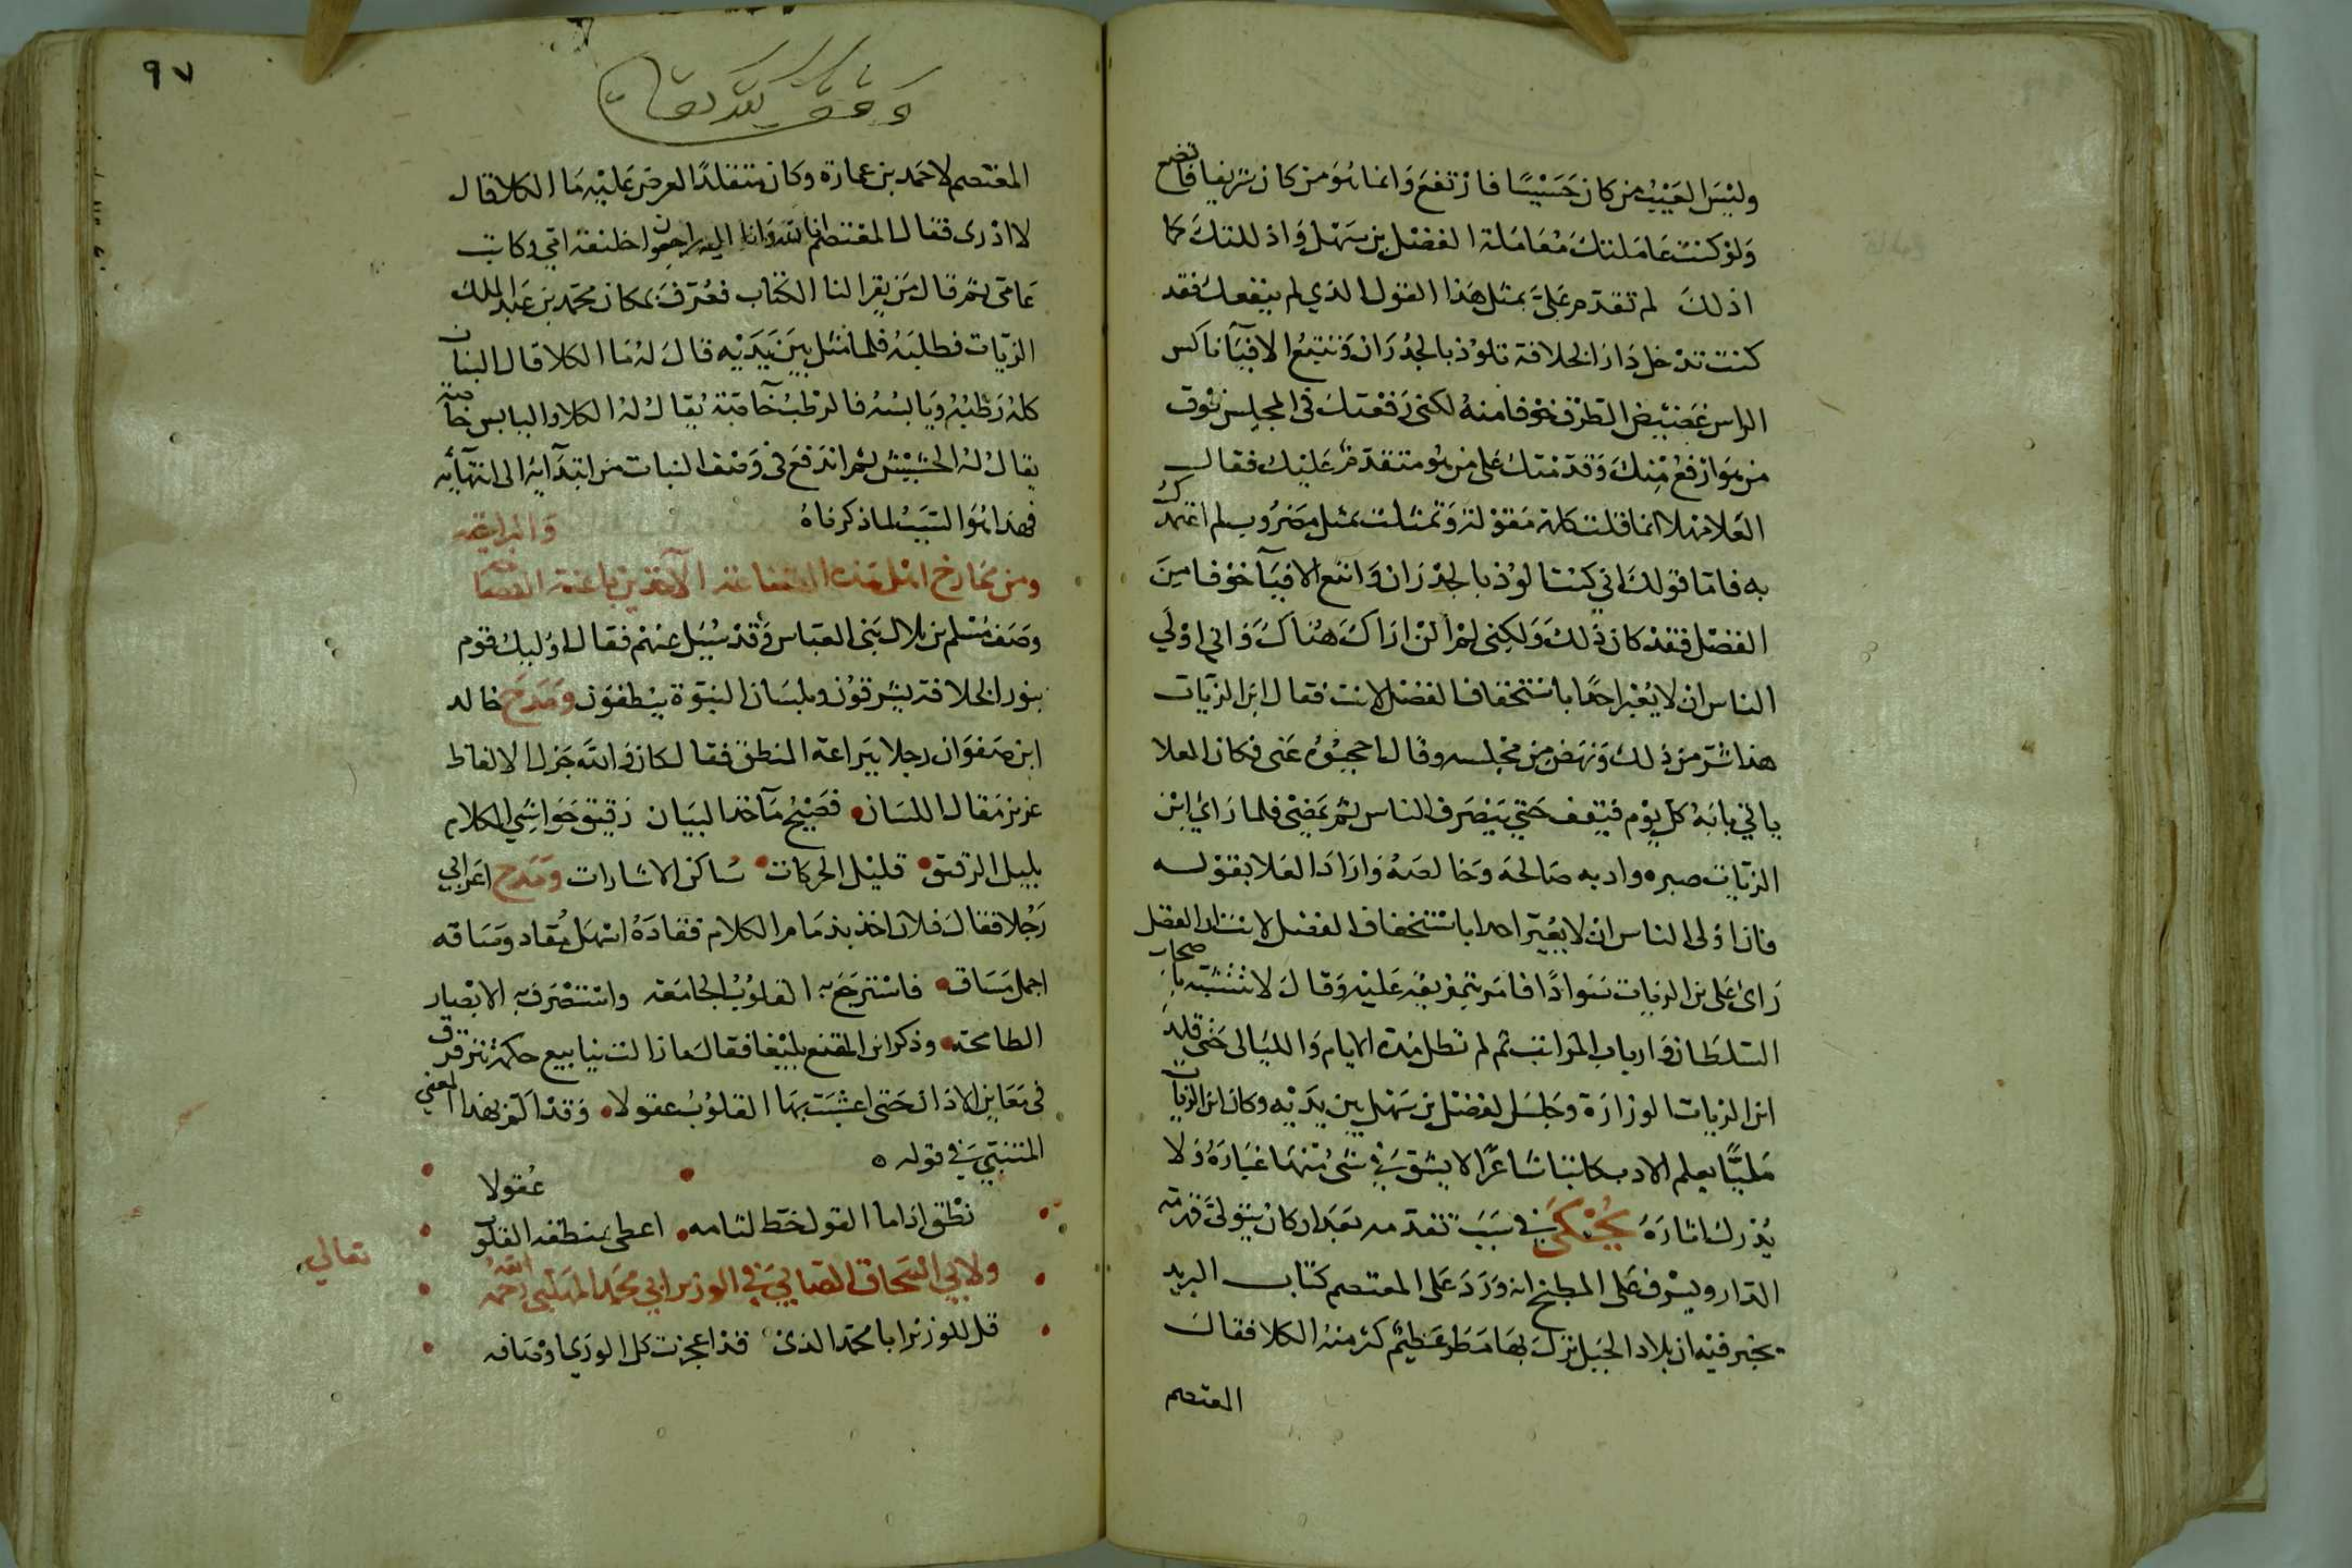 وليس العيب من كان خسيسا فارتفع وانما هو من كان شريفا فاتضع
ولو كنت عاملتك معاملة الفضل بن سهل واذللتك كما
اذلك لم تقدم علي بمثل هذا القول الذي لم ينفعك فقد
كنت تدخل دار الخلافة تلوذ بالجدران وتتبع الافيآ ناكس
الراس غضيض الطرف خوفا منه لكني رفعتك في المجلس فوق
من هو ارفع منك وقدمتك على من هو متقدم عليك فقال
العلا مهلا انما قلت كلمة مقولة وتمثلت بمثل مضروب لم اعتمدك
به فاما قولك اني كنت الوذ بالجدران واتبع الافيآ خوفا من
الفضل فقد كان ذلك ولكني لم ازل اراك هناك واني اولي
الناس ان لا يعير احدا باستخفاف الفضل لانت فقال ابن الزيات
هذا شر من ذلك ونهض من مجلسه وقال احجبوه عني فكان العلا
ياتي بابه كل يوم فيقف حتى ينصرف الناس ثم يمضي فلما راي ابن
الزيات صبره وادبه صالحه وخالصه واراد العلا بقوله
فان اولى الناس ان لا يعير احدا باستخفاف الفضل لانت ان الفضل
راى على ابن الزيات سوادا فامر بتمزيقه عليه وقال لا تتشبه باصحاب
السلطان وارباب المراتب ثم لم تطل مدة الايام والليالي حتى قلد
ابن الزيات الوزارة وجلس الفضل بن سهل بين يديه وكان ابن الزيات
مليا بعلم الادب كاتبا شاعرا لا يشق في شي منها غباره ولا
يدرك اثاره يحكى في سبب تقدمه بعد ان كان يتولى قهرمة
الدار ويشرف على المطبخ انه ورد على المعتصم كتاب البريد
يخبر فيه ان بلاد الجبل نزل بها مطر عظيم كثر منه الكلا فقال
المعتصم
٩٧
وقف لله تعالى
المعتصم لاحمد بن عمارة وكان متقلدا العرض عليه ما الكلا قال
لا ادرى فقال المعتصم انا لله وانا اليه راجعون اخليفة امي وكاتب
عامي ثم قال من يقرا لنا الكتاب فعرف بمكان محمد بن عبد الملك
الزيات فطلبه فلما مثل بين يديه قال له ما الكلا قال النبات
كله رطبه ويابسه فالرطب خآصة يقال له الكلا واليابس خآصة
يقال له الحشيش ثم اندفع في وصف النبات من ابتدآيه الى انتهآيه
فهذا هو السبب لما ذكرناه
ومن مخارج اهل هذه الصناعة الآخذين باعنة الفصاحة والبراعة
وصف مسلم بن بلال بني العباس وقد سيل عنهم فقال اوليك قوم
بنور الخلافة يشرقون وبلسان النبوة ينطقون ومدح خالد
ابن صفوان رجلا ببراعة المنطق فقال كان والله جزل الالفاظ
عزيز مقال اللسان فصيح مآخذ البيان رقيق حواشي الكلام
بليل الريق قليل الحركات ساكن الاشارات ومدح اعرابي
رجلا فقال فلان اخذ بزمام الكلام فقاده اسهل مقاد وساقه
اجمل مساق فاسترجع به القلوب الجامعة واستصرف به الابصار
الطامحة وذكر ابن المقفع بليغا فقال ما زالت ينابيع حكمه تترقرق
في مغابن الاذان حتى اعشبت بها القلوب عقولا وقد الم بهذا المعنى
المتنبي في قوله
نطق اذا ما القول حط لثامه اعطى بمنطقه القلوب عقولا
ولابي اسحاق الصابي في الوزير ابي محمد المهلبي رحمه الله تعالى
قل للوزير ابا محمد الذي قد اعجزت كل الورى اوصافه